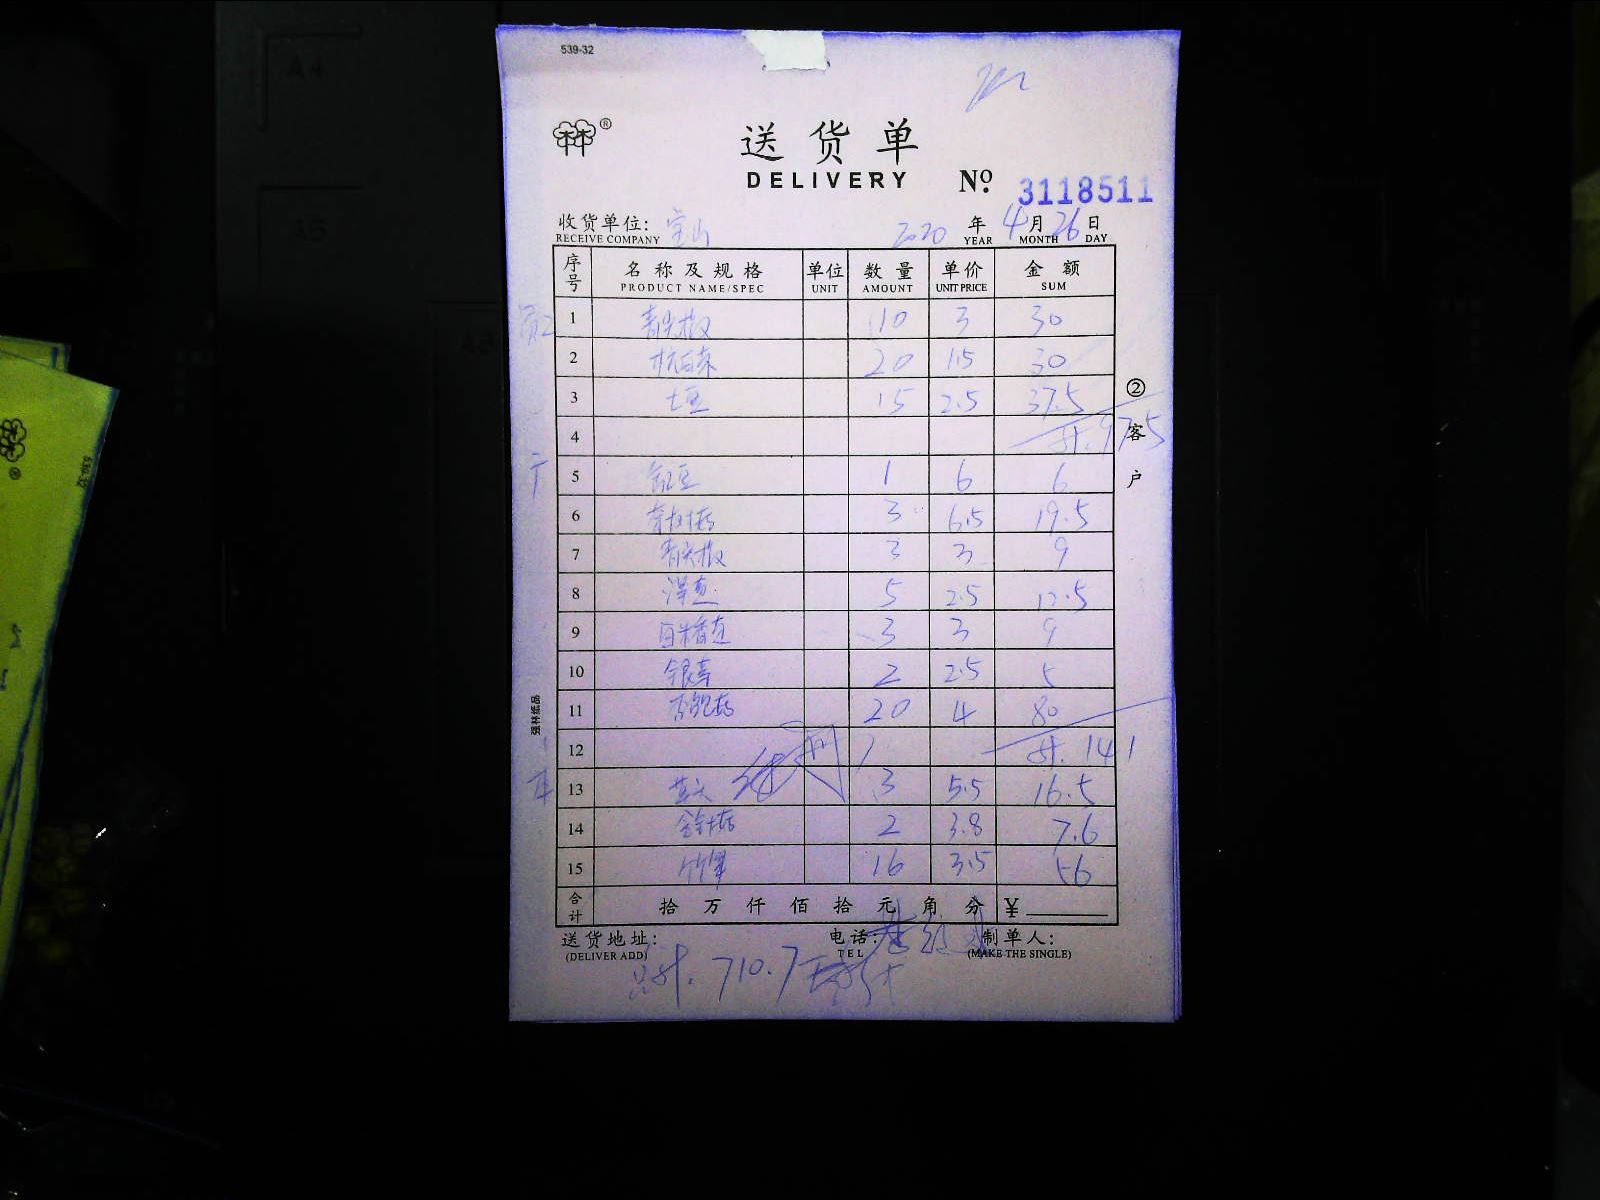 539-32
送货单
DELIVERY
№ 3118511
收货单位: 宝山 2020 年 4 月 26 日
RECEIVE COMPANY YEAR MONTH DAY
序号 名称及规格 单位 数量 单价 金额
PRODUCT NAME/SPEC UNIT AMOUNT UNIT PRICE SUM
1 青尖椒 10 3 30
2 杭白菜 20 1.5 30
3 土豆 15 2.5 37.5
4 计. 97.5
5 豆 1 6 6
6 菇 3 6.5 19.5
7 青尖椒 3 3 9
8 洋葱 5 2.5 12.5
9 3 3 9
10 银芽 2 2.5 5
11 杏鲍菇 20 4 80
12 计. 141
13 3 5.5 16.5
14 金针菇 2 3.8 7.6
15 竹笋 16 3.5 56
合计 拾 万 仟 佰 拾 元 角 分 ¥
送货地址: 电话: 制单人:
(DELIVER ADD) TEL (MAKE THE SINGLE)
总计. 710.7
②客户
强林纸品